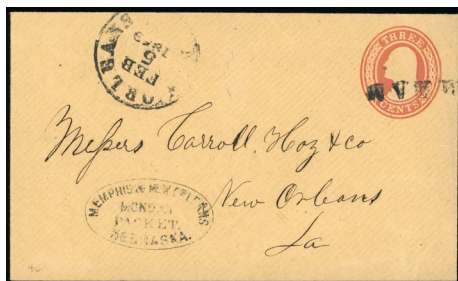 ORLEANS
FEB
5
1859
THREE
CENTS
Messrs Carroll, Hoy & co
New Orleans
La
MEMPHIS & NEW ORLEANS
MONDAY
PACKET.
NEBRASKA.